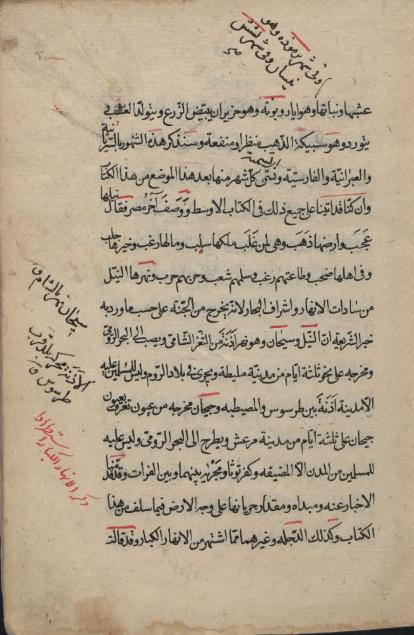 وفي شهر برموده وهو
نيسان وفي شهر بشنس
عشبها ونباتها وهو ايار وبونة وهو حزيران يبيض الزرع ويتولد العشب
يتورد وهو سبيكة الذهب منظرا ومنفعة وسنذكر هذه الشهور بالسريانية
والعبرانية والفارسية ونسمي كل شهر منها بعد هذا الموضع من هذا الكتاب
وان كنا قد اتينا على جميع ذلك في الكتاب الاوسط ووصف آخر مصر فقال نيلها
عجب وارضها ذهب وهي لمن غلب ملكها سلب ومالها رغب وخيرها جلب
وفي اهلها صخب وطاعتهم رهب وسلمهم شعب وحربهم حرب ونهرها النيل
من سادات الانهار واشراف البحار لانه يخرج من الجنة على حسب ما ورد به
خبر الشريعة ان النيل وسيحان وهو نهر اذنة من الثغر الشامي ويصب الى البحر الرومي
ومخرجه على نحو ثلثة ايام من مدينة ملطية ويجري في بلاد الروم وليس للمسلمين عليه
الا مدينة اذنة بين طرسوس والمصيصة وجيحان مخرجه من عيون تعرف بعيون
جيحان على ثلثة ايام من مدينة مرعش ويطرح الى البحر الرومي وليس عليه
للمسلمين من المدن الا المصيصة وكفرتوثا ومجراه بينهما وبين الفرات وقد تقدم
الاخبار عنه ومبداه ومقدار جريانها على وجه الارض فيما سلف من هذا
الكتاب وكذلك الدجلة وغيرهما مما اشتهر من الانهار الكبار وقد قالت
سيحان نهر بالشام
طرسوس
ذكر الانهار الكبار